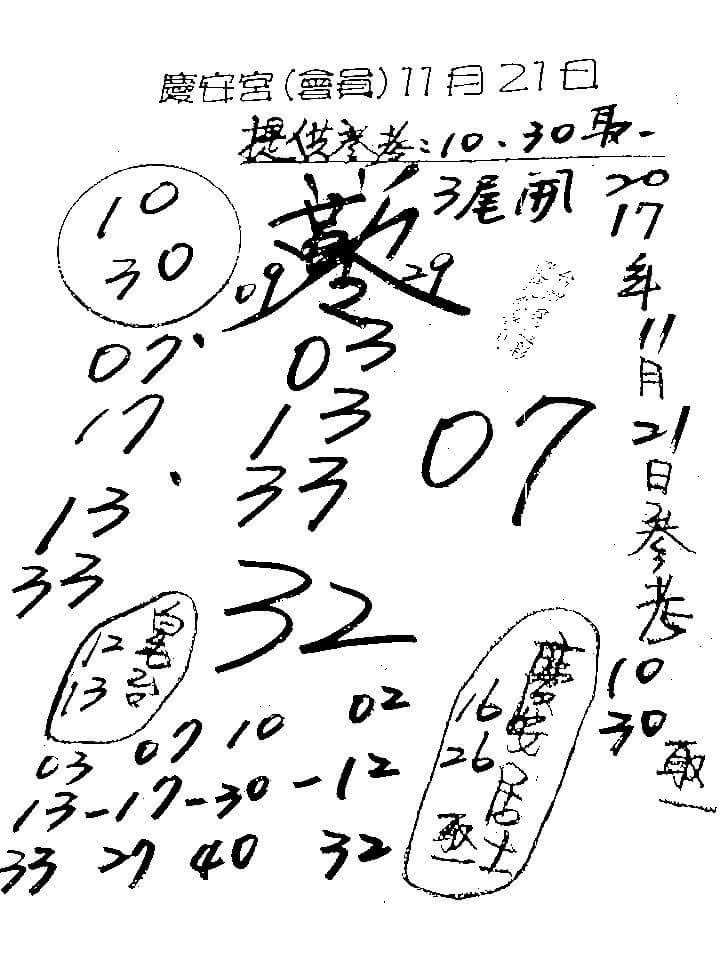 慶安宮(會員)11月21日
提供參考:10.30取一
3尾開
10
30
09 29
07 03
17 13
13 33
33
07
32
12
13
03 07 10 02
13-17-30-12
33 27 40 32
慶安居士
16
26
取一
20
17
年
11
月
21
日
參
考
10
30
取一